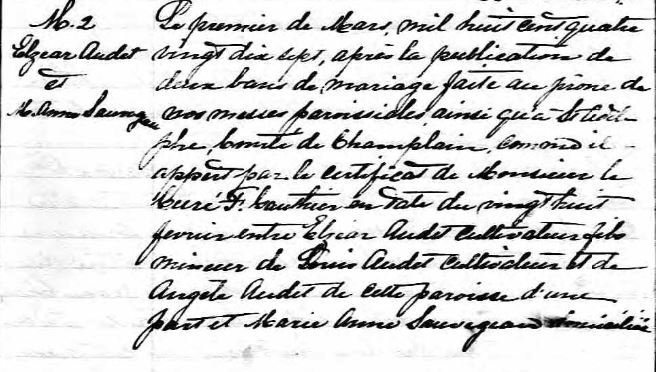 M. 2
Elzear Audet
et
M. Anne Sauvageau
Le premier de Mars, mil huit cent quatre
vingt dix sept, après la publication de
deux bans de mariage faite au prone de
nos messes paroissiales ainsi qu'à St Adel
phe, Comté de Champlain, comme il
appert par le certificat de Monsieur le
Curé F. Gauthier en date du vingt huit
fevrier entre Elzear Audet cultivateur fils
mineur de Louis Audet cultivateur et de
Angèle Audet de cette paroisse d'une
part et Marie Anne Sauvageau domiciliée